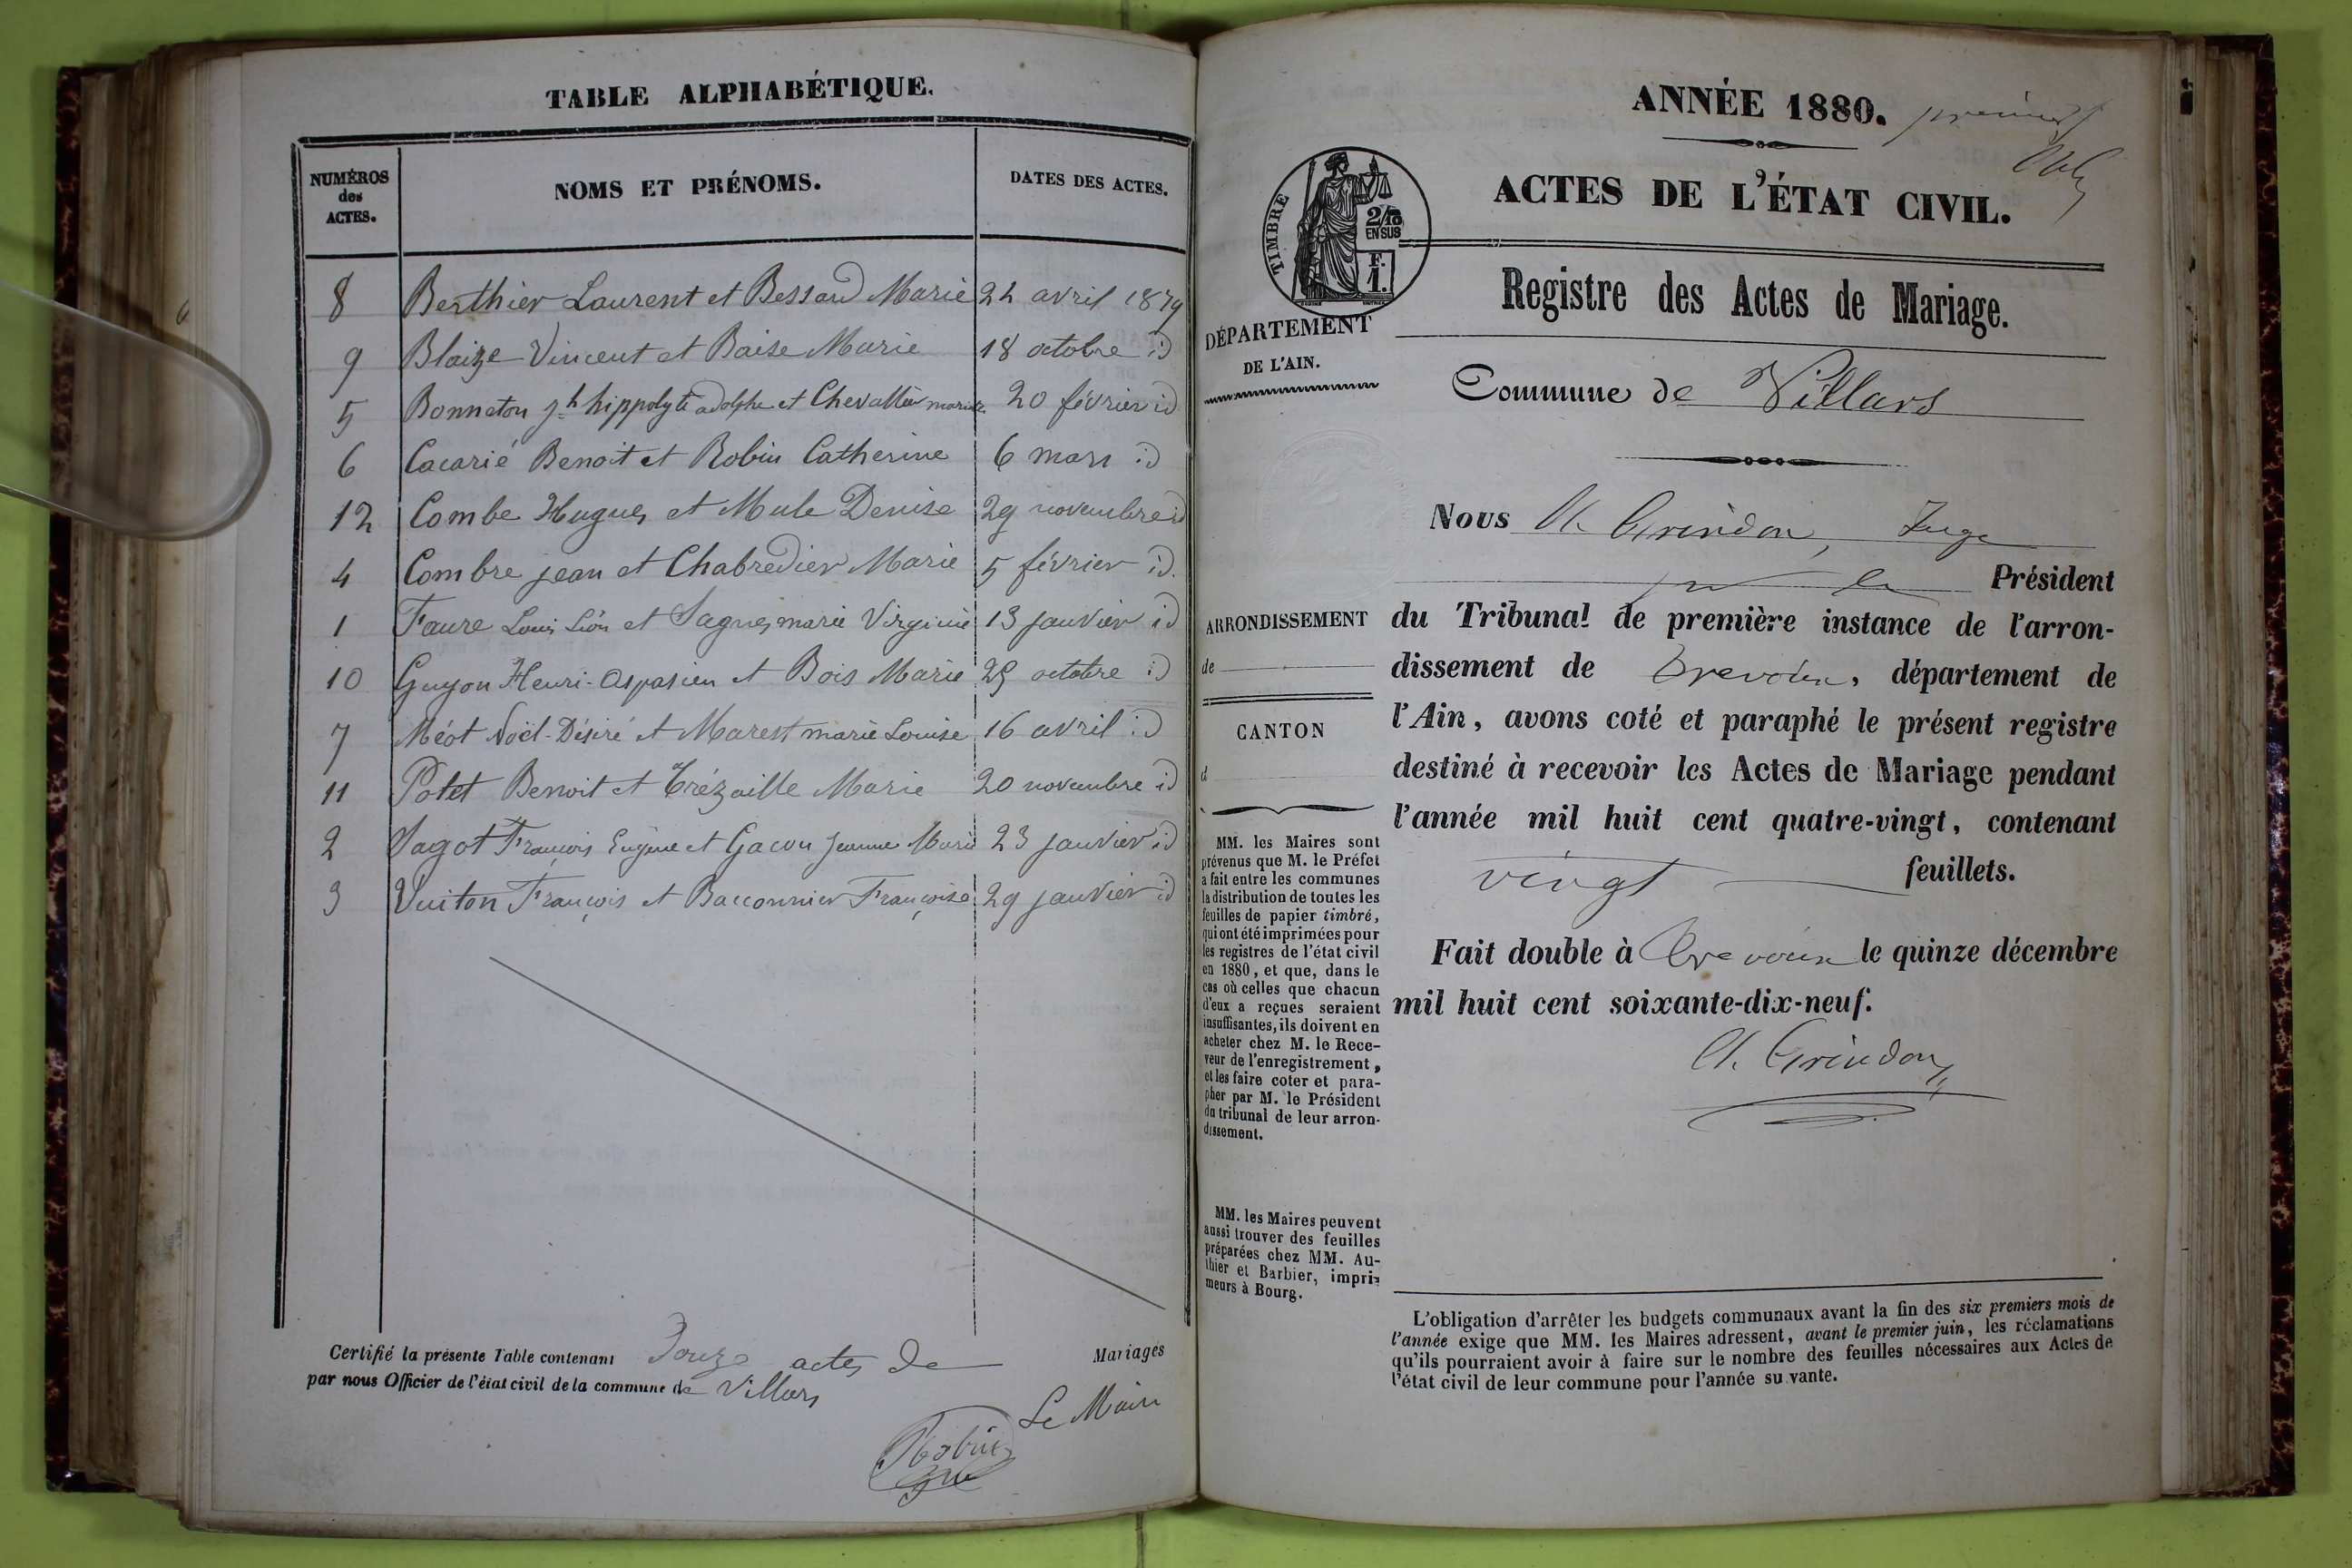 TABLE ALPHABÉTIQUE.
NUMÉROS des ACTES. NOMS ET PRÉNOMS. DATES DES ACTES.
8 Berthier Laurent et Bessard Marie 22 avril 1879
9 Blaize Vincent et Baise Marie 18 octobre id
5 Bonneton jh hippolyte adolphe et Chevallier marie 20 février id
6 Cacarié Benoit et Robin Catherine 6 mars id
12 Combe Hugues et Mule Denise 29 novembre id
4 Combre jean et Chabredier Marie 5 février id.
1 Faure Louis Léon et Sagnes marie Virginie 13 janvier id
10 Guyon Henri-Aspasien et Bois Marie 25 octobre id
7 Méot Noël-Désiré et Marest marie Louise 16 avril id
11 Potet Benoit et Trézaille Marie 20 novembre id
2 Sagot François Eugène et Gacon Jeanne Marie 23 janvier id
3 Vuiton François et Bacconnier Françoise 29 janvier id
Certifié la présente Table contenant Douze actes de Mariages
par nous Officier de l'état civil de la commune de Villars
Le Maire
Robin
ANNÉE 1880. premier
ACTES DE L'ÉTAT CIVIL.
TIMBRE
2/10
EN SUS
F.
1.
Registre des Actes de Mariage.
DÉPARTEMENT
DE L'AIN.
Commune de Villars
Nous Ch. Grindon, Juge
Président
du Tribunal de première instance de l'arron-
dissement de Trevoux, département de
l'Ain, avons coté et paraphé le présent registre
destiné à recevoir les Actes de Mariage pendant
l'année mil huit cent quatre-vingt, contenant
vingt feuillets.
Fait double à Trevoux le quinze décembre
mil huit cent soixante-dix-neuf.
Ch. Grindon
ARRONDISSEMENT
de
CANTON
d
MM. les Maires sont
prévenus que M. le Préfet
a fait entre les communes
la distribution de toutes les
feuilles de papier timbré,
qui ont été imprimées pour
les registres de l'état civil
en 1880, et que, dans le
cas où celles que chacun
d'eux a reçues seraient
insuffisantes, ils doivent en
acheter chez M. le Rece-
veur de l'enregistrement,
et les faire coter et para-
pher par M. le Président
du tribunal de leur arron-
dissement.
MM. les Maires peuvent
aussi trouver des feuilles
préparées chez MM. Au-
thier et Barbier, impri-
meurs à Bourg.
L'obligation d'arrêter les budgets communaux avant la fin des six premiers mois de
l'année exige que MM. les Maires adressent, avant le premier juin, les réclamations
qu'ils pourraient avoir à faire sur le nombre des feuilles nécessaires aux Actes de
l'état civil de leur commune pour l'année su vante.